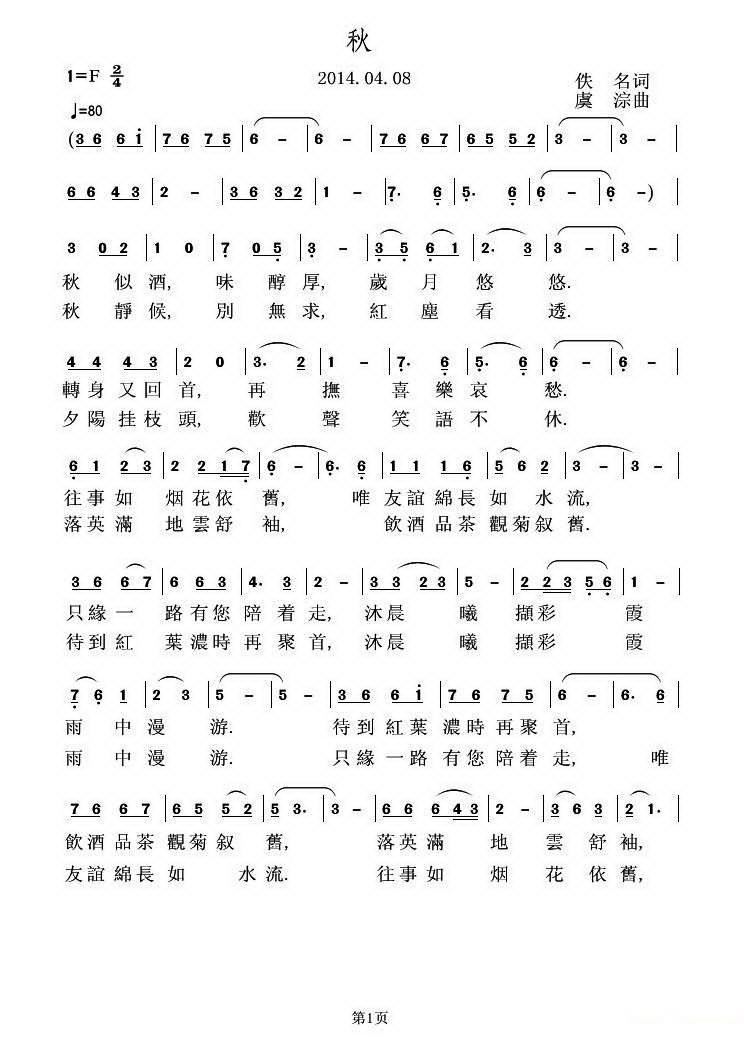 秋
1=F 2/4
2014.04.08
佚 名词
♩=80
虞 淙曲
(3 6 6 i | 7 6 7 5 | 6 - | 6 - | 7 6 6 7 | 6 5 5 2 | 3 - | 3 - |
6 6 4 3 | 2 - | 3 6 3 2 | 1 - | 7. 6 | 5. 6 | 6 - | 6 -) |
3 0 2 | 1 0 | 7 0 5 | 3 - | 3 5 6 1 | 2. 3 | 3 - | 3 - |
秋 似酒, 味 醇厚, 歲 月 悠 悠.
秋 靜候, 別 無求, 紅 塵 看 透.
4 4 4 3 | 2 0 | 3. 2 | 1 - | 7. 6 | 5. 6 | 6 - | 6 - |
轉身又回首, 再 撫 喜 樂哀 愁.
夕陽挂枝頭, 歡 聲 笑 語不 休.
6 1 2 3 | 2 2 1 7 | 6 - | 6. 6 | 1 1 1 6 | 5 6 2 | 3 - | 3 - |
往事如 烟花依 舊, 唯友誼綿長如 水流,
落英滿 地雲舒 袖, 飲酒品茶觀菊叙舊.
3 6 6 7 | 6 6 3 | 4. 3 | 2 - | 3 3 2 3 | 5 - | 2 2 3 5 6 | 1 - |
只緣一 路有您陪着走, 沐晨 曦 擷彩 霞
待到紅 葉濃時再聚首, 沐晨 曦 擷彩 霞
7 6 1 | 2 3 | 5 - | 5 - | 3 6 6 i | 7 6 7 5 | 6 - | 6. 6 |
雨 中漫 游. 待到紅葉濃時再聚首,
雨 中漫 游. 只緣一路有您陪着走, 唯
7 6 6 7 | 6 5 5 2 | 5 3. | 3 - | 6 6 6 4 3 | 2 - | 3 6 3 | 2 1. |
飲酒品茶觀菊叙 舊, 落英滿 地 雲 舒袖,
友誼綿長如 水流. 往事如 烟 花 依舊,
第1页